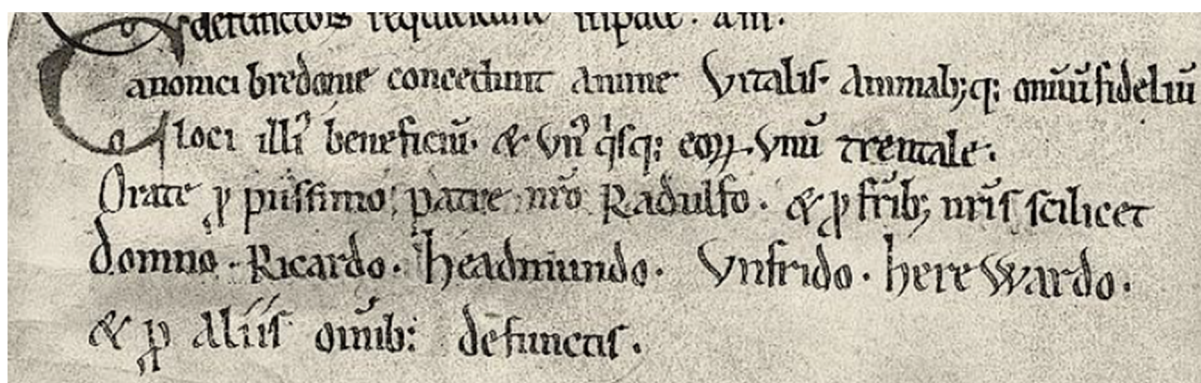 defunctois requiescant inpace. am.
Canonici bredonie concedunt anime Vitalis Animab;q; omniū fidelium
loci illi' beneficiū. & Vn' q'sq; eoꝝ Vnū trentale.
Orate ꝓ piissimo patre nr̄o Radulfo. & ꝓ fr̄ib; nr̄is scilicet
domno. Ricardo. headmundo. Vnfrido. hereWardo.
& ꝓ Aliis om̄ib: defunctis.